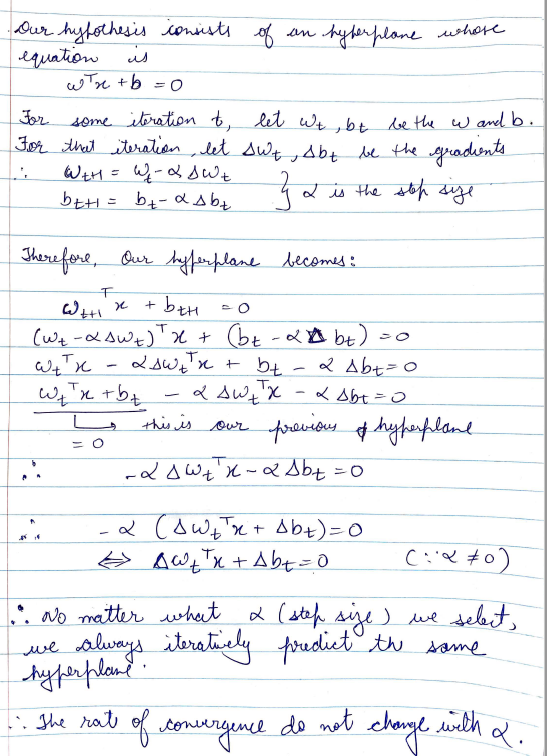 Our hypothesis consists of an hyperplane whose
equation is
wᵀx + b = 0
For some iteration t, let wₜ, bₜ be the w and b.
For that iteration, let Δwₜ, Δbₜ be the gradients
∴ wₜ₊₁ = wₜ - α Δwₜ } α is the step size
bₜ₊₁ = bₜ - α Δbₜ
Therefore, Our hyperplane becomes:
wₜ₊₁ᵀ x + bₜ₊₁ = 0
(wₜ - αΔwₜ)ᵀ x + (bₜ - αΔbₜ) = 0
wₜᵀx - αΔwₜᵀx + bₜ - α Δbₜ = 0
wₜᵀx + bₜ - α Δwₜᵀx - α Δbₜ = 0
↳ this is our previous hyperplane
= 0
∴ -α Δwₜᵀx - α Δbₜ = 0
∴ -α (Δwₜᵀx + Δbₜ) = 0
⇔ Δwₜᵀx + Δbₜ = 0 (∵ α ≠ 0)
∴ No matter what α (step size) we select,
we always iteratively predict th same
hyperplane.
∴ The rat of convergence do not change with α.